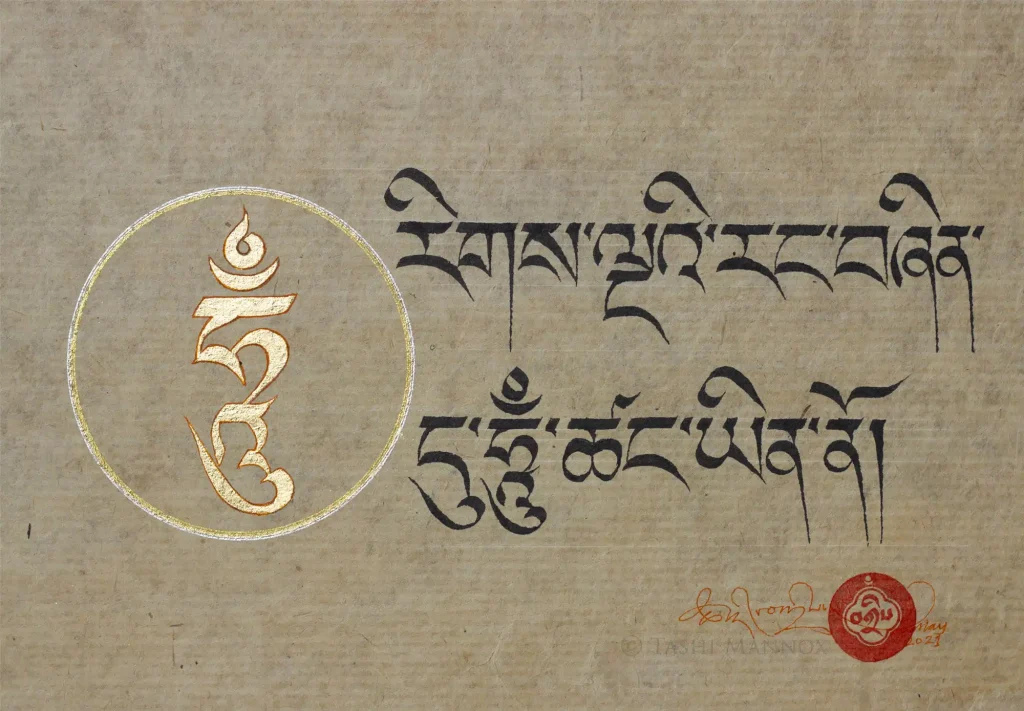 ཧཱུྃ
རིགས་ལྔའི་རང་བཞིན་
དུ་ཧཱུྃ་ཚང་ཡིན་ནོ།
May
2023
© TASHI MANNOX